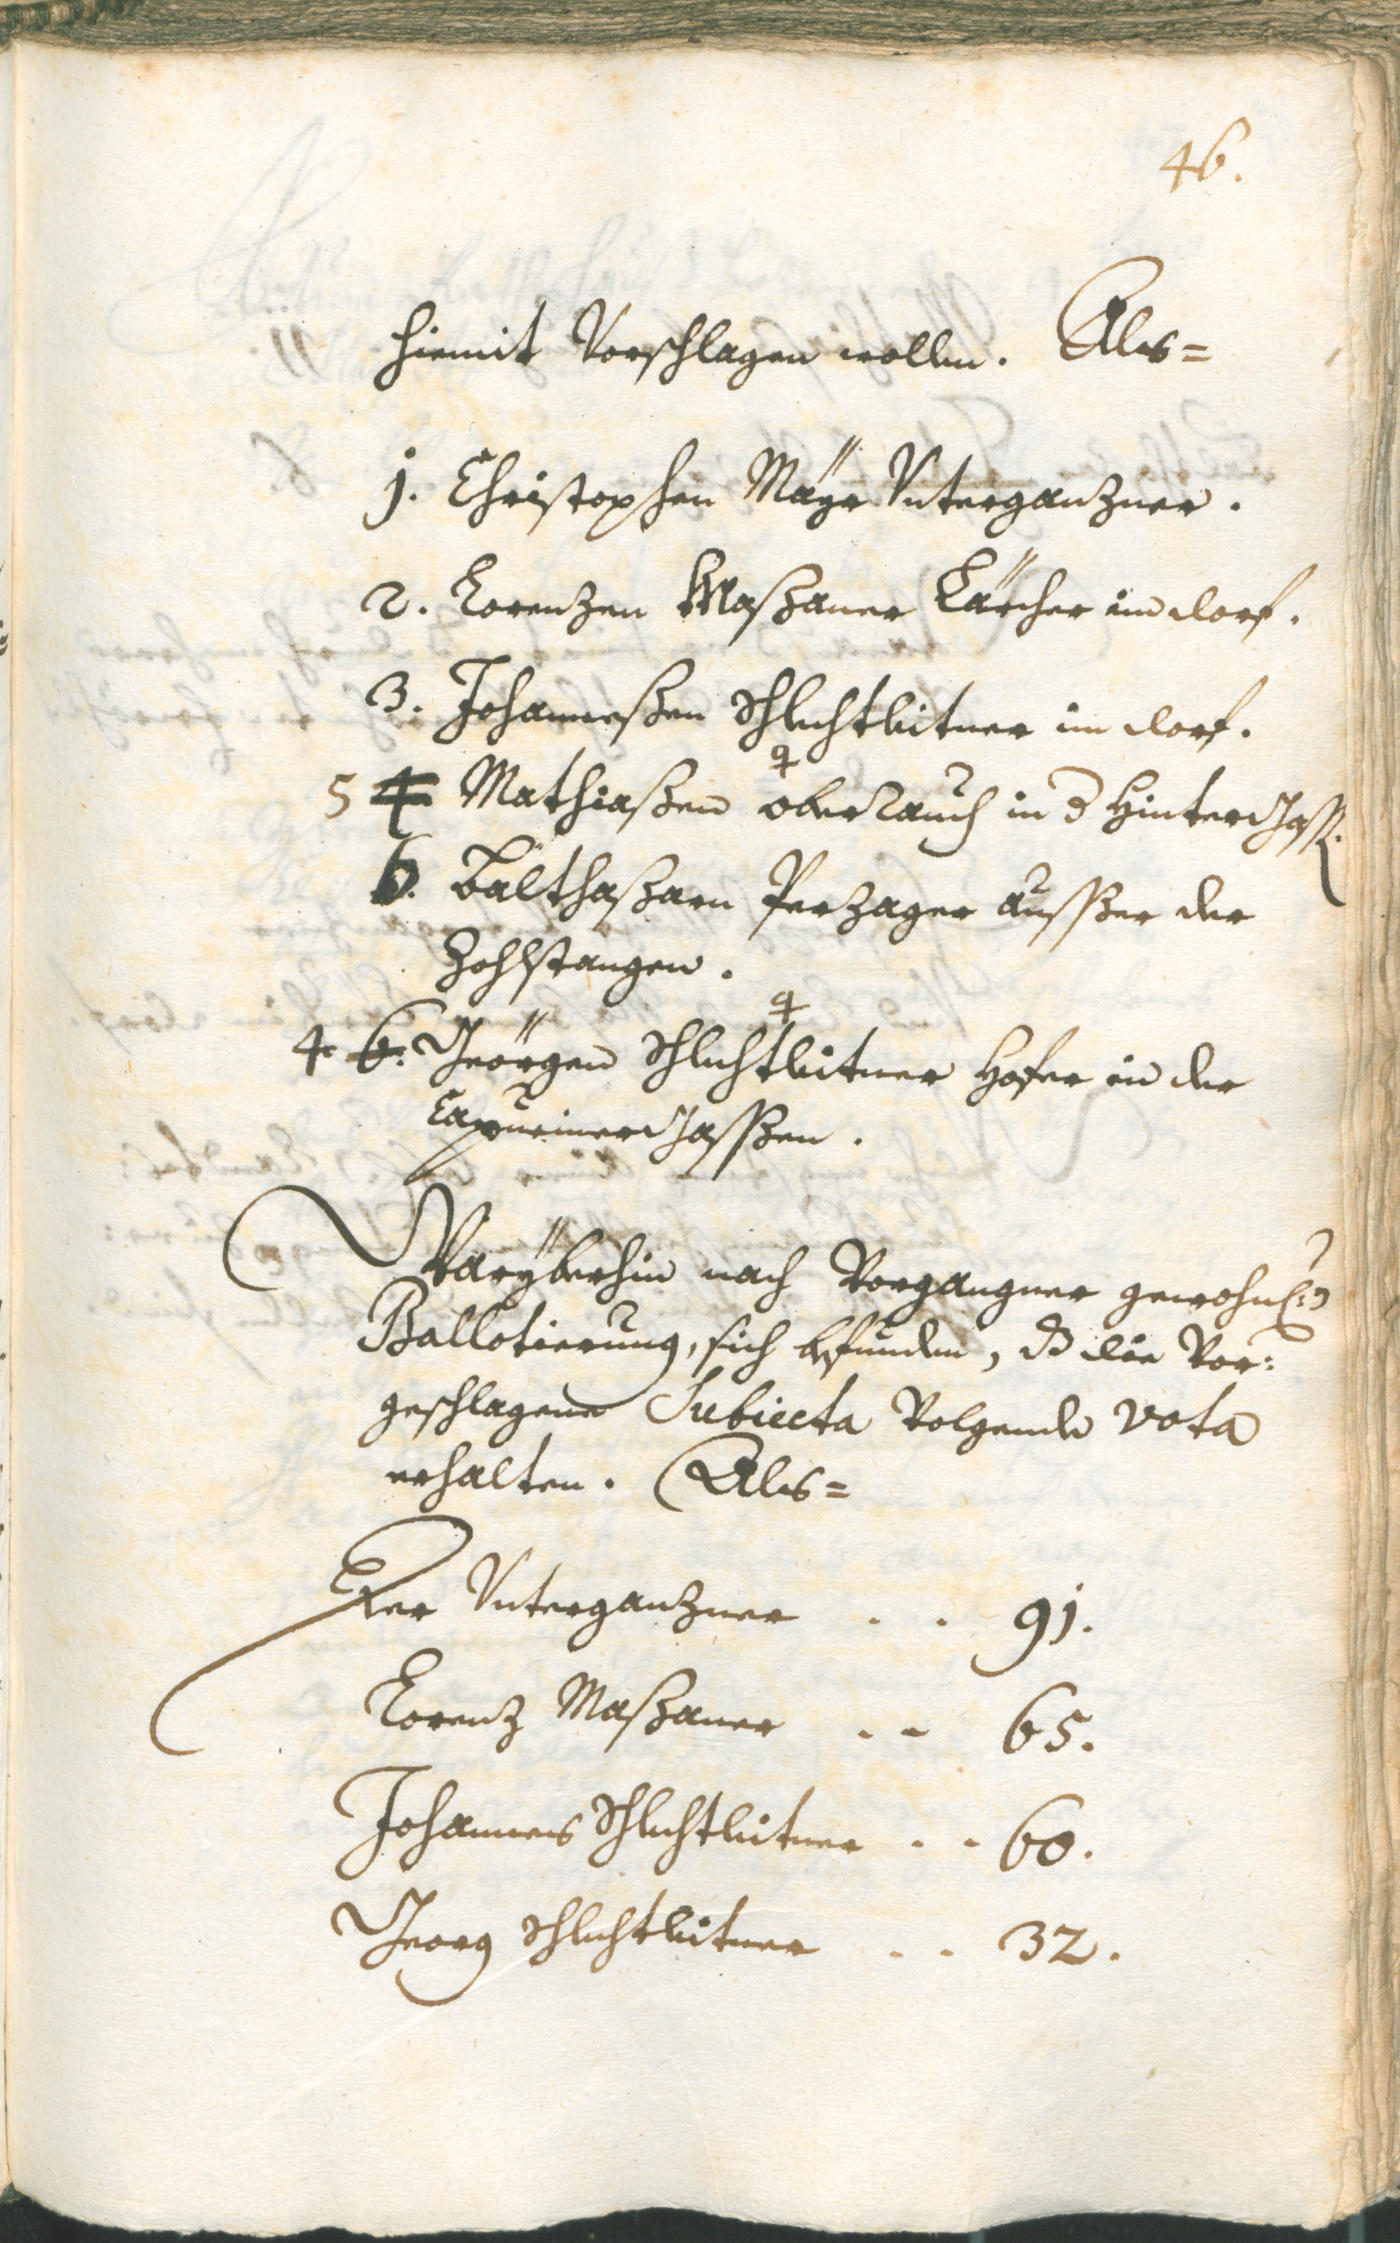 46.
hiemit Vorschlagen wollen. Als=
1. Christophen Mäyr Vnterganzner.
2. Lorenzen Maßaner Lärcher im dorf.
3. Johanneßen Schlechtleitner im dorf.
5 4 Mathiaßen oberrauch in d Hintergaß.
6. Balthaßarn Perzager ausser der
Zohlstangen.
4. 6. Geörgen Schlechtleitner Hofer in der
Capucinergassen.
Warÿberhin nach Vorgangner gewohnl:r
Ballotierung, sich befunden, dß die Vor=
geschlagene Subiecta Volgende vota
erhalten. Als=
Der Vnterganzner . . 91.
Lorenz Maßaner . . 65.
Johannes Schlechtleitner . . 60.
Georg Schlechtleitner . . 32.